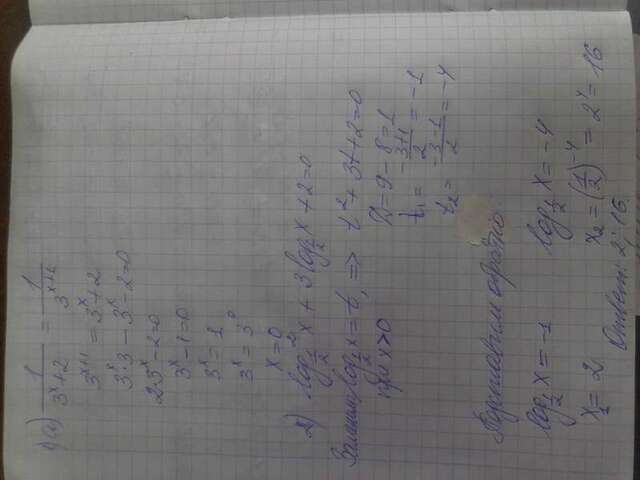 1) а) 1/(3^x+2) = 1/3^(x+1)
3^(x+1) = 3^x + 2
3^x·3 - 3^x - 2 = 0
2·3^x - 2 = 0
3^x - 1 = 0
3^x = 1
3^x = 3^0
x = 0
2) log²_(1/2) x + 3 log_(1/2) x + 2 = 0
Замени: log_(1/2) x = t, => t² + 3t + 2 = 0
при x > 0
D = 9 - 8 = 1
t₁ = (-3+1)/2 = -1
t₂ = (-3-1)/2 = -4
обратно:
log_(1/2) x = -1 log_(1/2) x = -4
x₁ = 2 x₂ = (1/2)^(-4) = 2^4 = 16
Ответ: 2; 16.